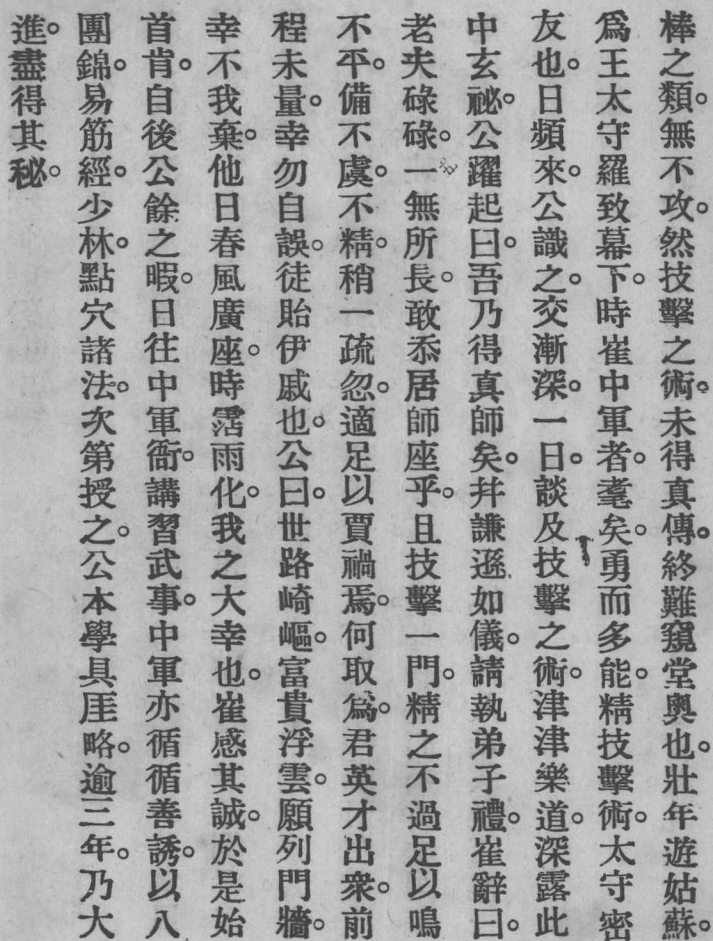 棒之類。無不攻。然技擊之術。未得真傳。終難窺堂奧也。壯年遊姑蘇。
爲王太守羅致幕下。時崔中軍者。耄矣。勇而多能。精技擊術。太守密
友也。日頻來。公識之。交漸深。一日。談及技擊之術。津津樂道。深露此
中玄祕。公躍起曰。吾乃得真師矣。幷謙遜如儀。請執弟子禮。崔辭曰。
老夫碌碌。一無所長。敢忝居師座乎。且技擊一門。精之不過足以鳴
不平。備不虞。不精。稍一疏忽。適足以賈禍焉。何取爲。君英才出衆。前
程未量。幸勿自誤。徒貽伊戚也。公曰。世路崎嶇。富貴浮雲。願列門牆。
幸不我棄。他日春風廣座。時霑雨化。我之大幸也。崔感其誠。於是始
首肯。自後公餘之暇。日往中軍衙。講習武事。中軍亦循循善誘。以八
團錦。易筋經。少林。點穴諸法。次第授之。公本學具厓略。逾三年。乃大
進。盡得其秘。